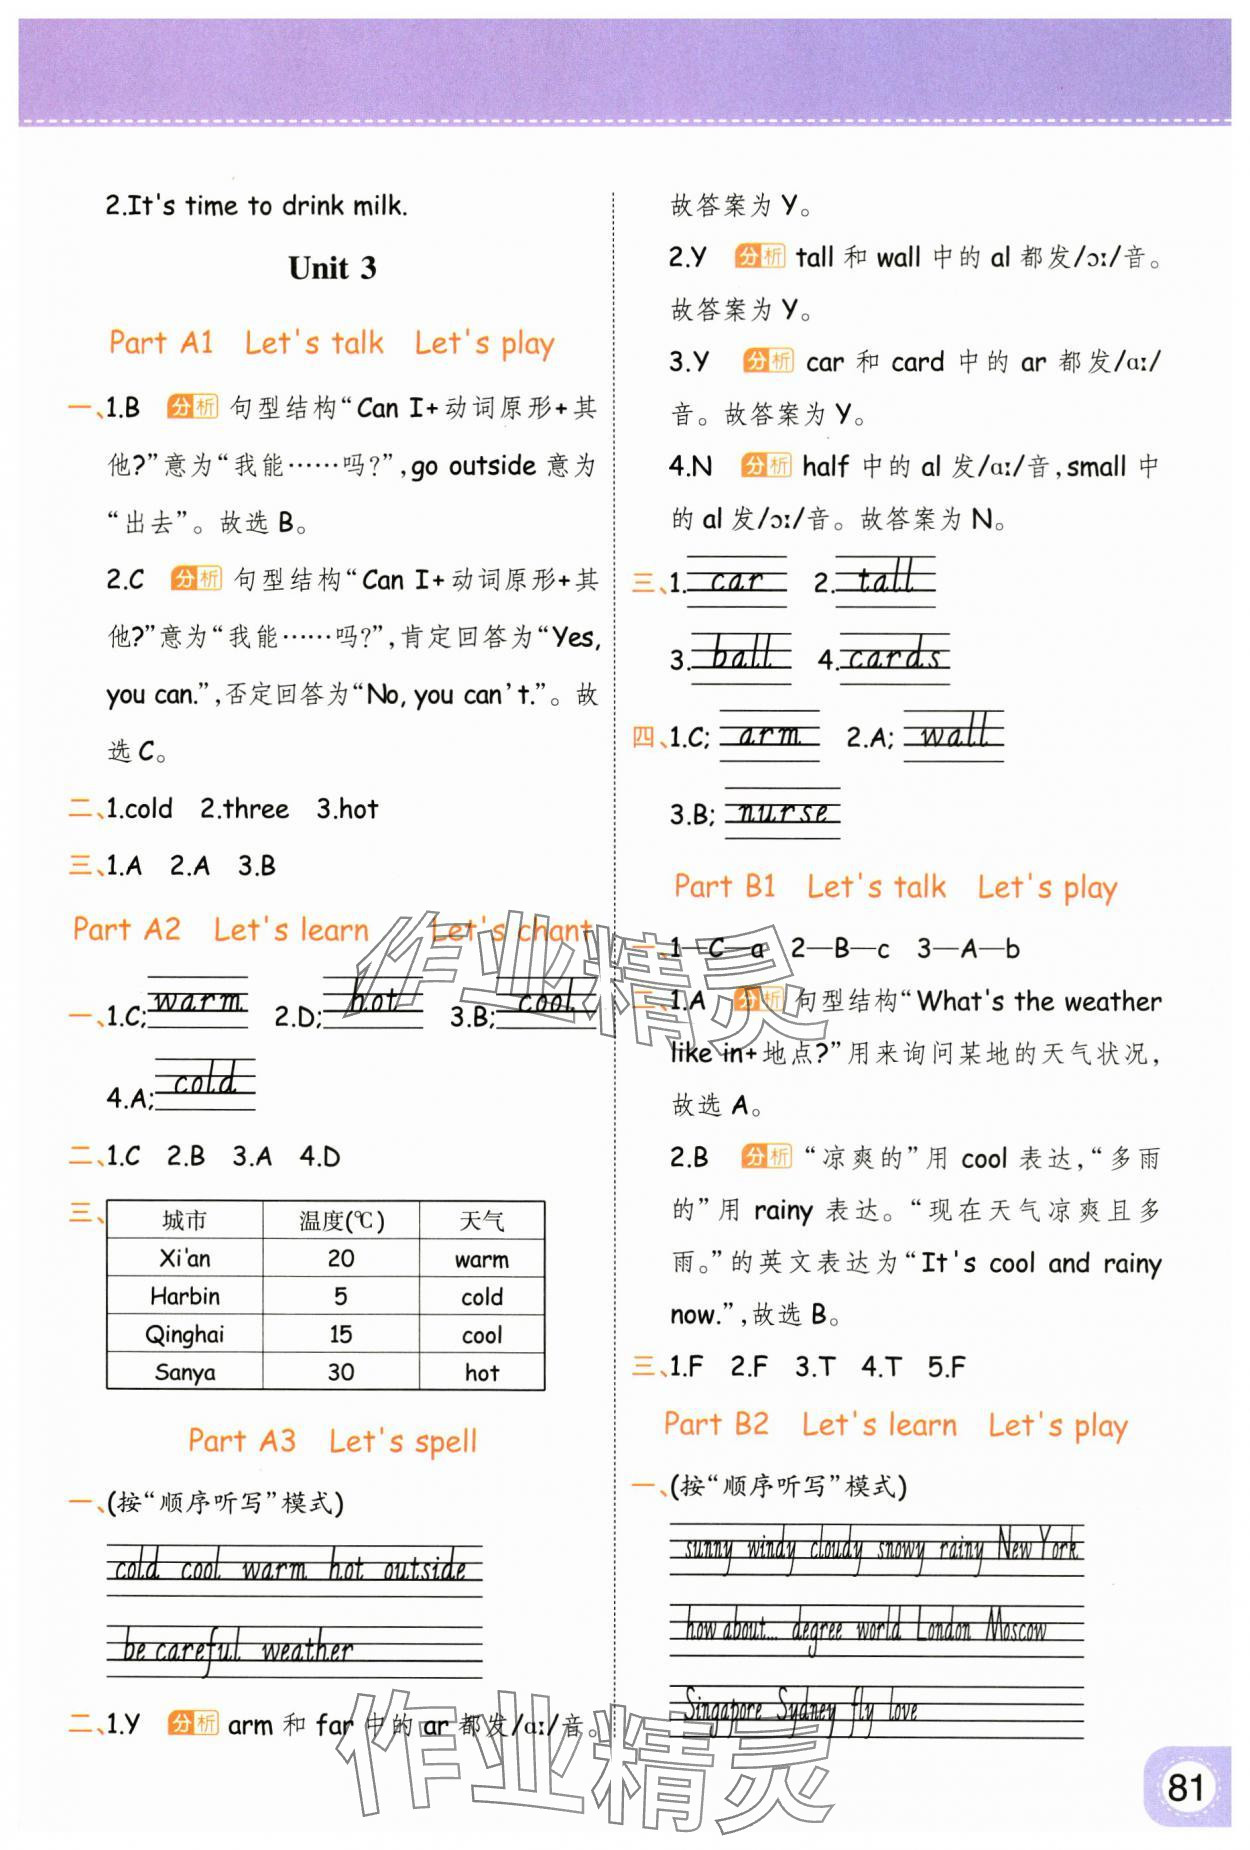 2.It's time to drink milk.
Unit 3
Part A1 Let's talk Let's play
一、1.B 分析 句型结构“Can I+动词原形+其
他?”意为“我能……吗?”,go outside 意为
“出去”。故选B。
2.C 分析 句型结构“Can I+动词原形+其
他?”意为“我能……吗?”,肯定回答为“Yes,
you can.”,否定回答为“No, you can't.”。故
选C。
二、1.cold 2.three 3.hot
三、1.A 2.A 3.B
Part A2 Let's learn Let's chant
一、1.C; warm 2.D; hot 3.B; cool
4.A; cold
二、1.C 2.B 3.A 4.D
三、
城市 温度(℃) 天气
Xi'an 20 warm
Harbin 5 cold
Qinghai 15 cool
Sanya 30 hot
Part A3 Let's spell
一、(按“顺序听写”模式)
cold cool warm hot outside
be careful weather
二、1.Y 分析 arm 和 far 中的 ar 都发/ɑː/音。
故答案为 Y。
2.Y 分析 tall 和 wall 中的 al 都发/ɔː/音。
故答案为 Y。
3.Y 分析 car 和 card 中的 ar 都发/ɑː/
音。故答案为 Y。
4.N 分析 half 中的 al 发/ɑː/音,small 中
的 al 发/ɔː/音。故答案为 N。
三、1. car 2. tall
3. ball 4. cards
四、1.C; arm 2.A; wall
3.B; nurse
Part B1 Let's talk Let's play
一、1—C—a 2—B—c 3—A—b
二、1.A 分析 句型结构“What's the weather
like in+地点?”用来询问某地的天气状况,
故选 A。
2.B 分析 “凉爽的”用 cool 表达,“多雨
的”用 rainy 表达。“现在天气凉爽且多
雨。”的英文表达为“It's cool and rainy
now.”,故选 B。
三、1.F 2.F 3.T 4.T 5.F
Part B2 Let's learn Let's play
一、(按“顺序听写”模式)
sunny windy cloudy snowy rainy New York
how about... degree world London Moscow
Singapore Sydney fly love
81
作业精灵
作业精灵